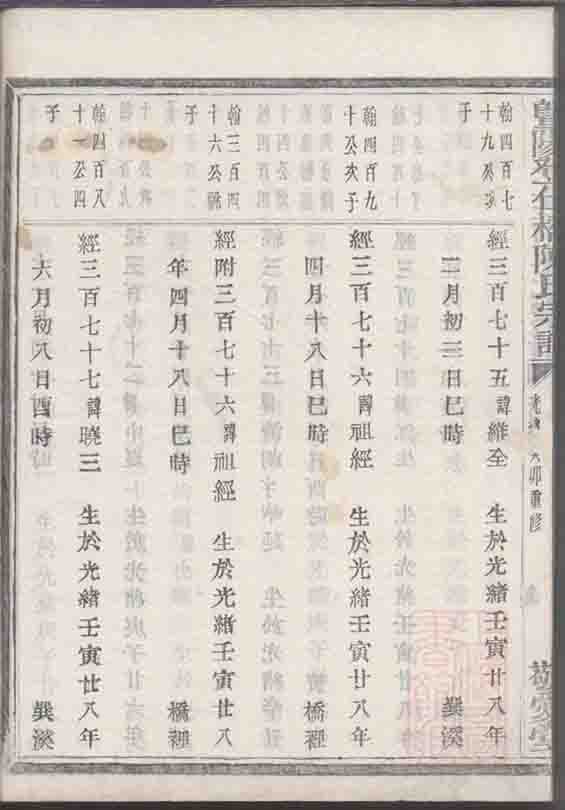 翰四百七
十九公次
子
經三百七十五諱維全 生於光緒壬寅廿八年
二月初三日巳時 巽溪
翰四百九
十公次子
經三百七十六諱祖經 生於光緒壬寅廿八年
四月十八日巳時 橋裡
翰三百四
十六公嗣
子
經附三百七十六諱祖經 生於光緒壬寅廿八
年四月十八日巳時 橋裡
翰四百八
十一公四
子
經三百七十七諱曉三 生於光緒壬寅廿八年
六月初八日酉時 巽溪